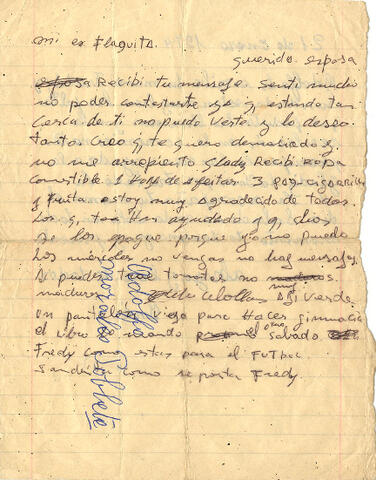 mi ex Flaquita
querida esposa
esposa Recibi tu mensaje senti mucho
no poder contestarte ya q estando tan
cerca de ti no puedo verte y lo deseo
tanto Creo q te quero demaciado y
no me arrepiento Glady Recibi Ropa
comestible. 1 Hoja de afeitar. 3
y fruta estoy muy agradecido de todos
Los q tan Han ayudado y q dios
se los pague porque yo no puedo
Los miercoles no vengas no hay mensajes
si puedes trae tomates no muy
maduros Cebollas Aji verde.
un pantalon viejo para Hacer gimnacia
el libro el otro sabado
Fredy como estas para el Futbol
Sandra como se porta Fredy.
Rodolfo
Morales Poblete